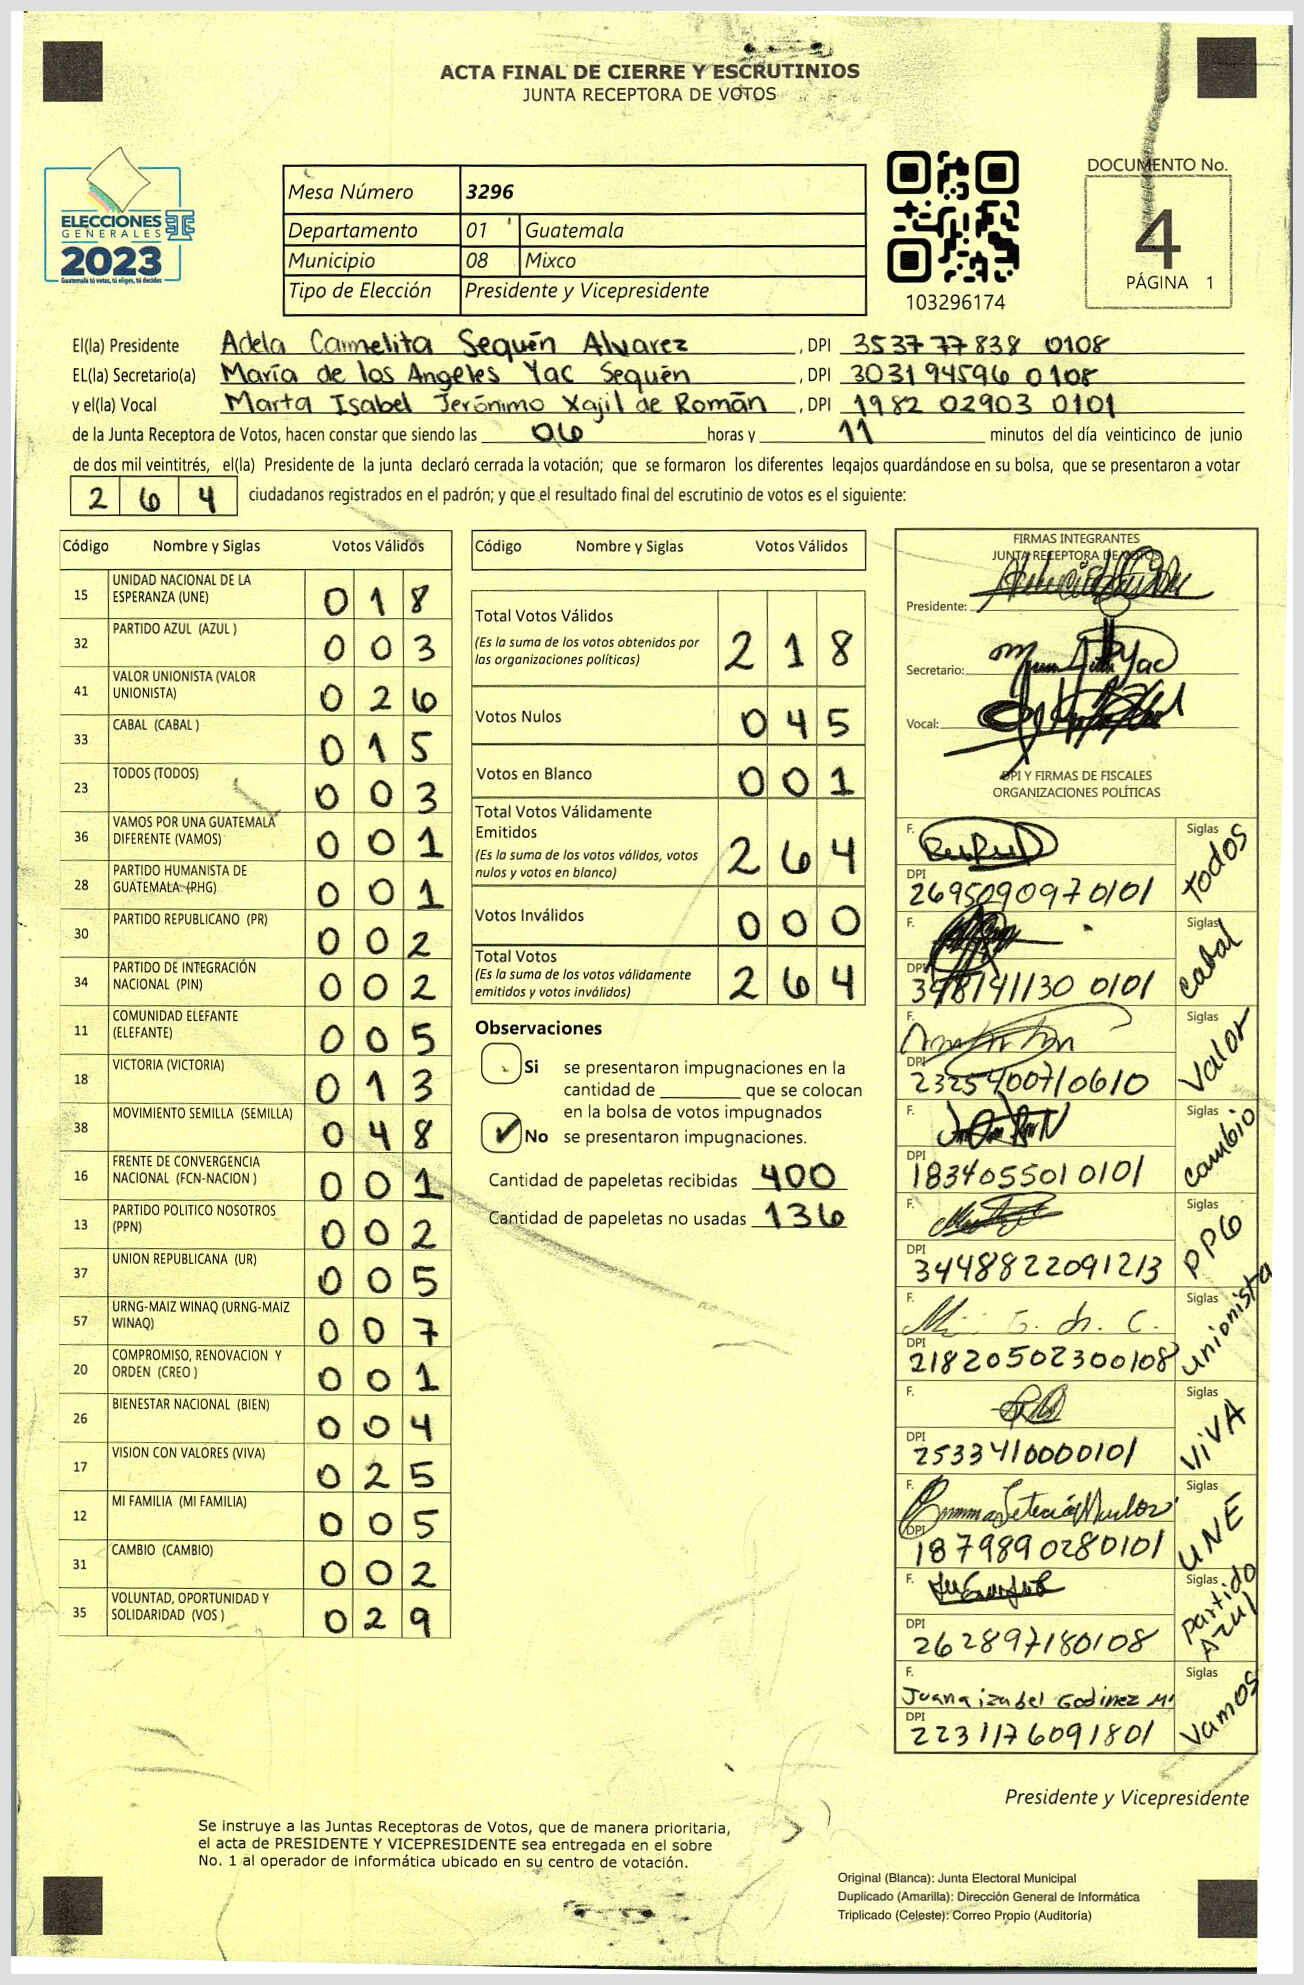 ACTA FINAL DE CIERRE Y ESCRUTINIOS
JUNTA RECEPTORA DE VOTOS
ELECCIONES
GENERALES
2023
Guatemala tú votas, tú eliges, tú decides
Mesa Número 3296
Departamento 01 Guatemala
Municipio 08 Mixco
Tipo de Elección Presidente y Vicepresidente
103296174
DOCUMENTO No.
4
PÁGINA 1
El(la) Presidente Adela Carmelita Sequén Alvarez, DPI 3537 77838 0108
EL(la) Secretario(a) María de los Angeles Yac Sequén, DPI 3031 94596 0108
y el(la) Vocal Marta Isabel Jerónimo Xajil de Román, DPI 1982 02903 0101
de la Junta Receptora de Votos, hacen constar que siendo las 06 horas y 11 minutos del día veinticinco de junio
de dos mil veintitrés, el(la) Presidente de la junta declaró cerrada la votación; que se formaron los diferentes legajos guardándose en su bolsa, que se presentaron a votar
264 ciudadanos registrados en el padrón; y que el resultado final del escrutinio de votos es el siguiente:
Código Nombre y Siglas Votos Válidos
15 UNIDAD NACIONAL DE LA ESPERANZA (UNE) 018
32 PARTIDO AZUL (AZUL ) 003
41 VALOR UNIONISTA (VALOR UNIONISTA) 026
33 CABAL (CABAL ) 015
23 TODOS (TODOS) 003
36 VAMOS POR UNA GUATEMALA DIFERENTE (VAMOS) 001
28 PARTIDO HUMANISTA DE GUATEMALA (PHG) 001
30 PARTIDO REPUBLICANO (PR) 002
34 PARTIDO DE INTEGRACIÓN NACIONAL (PIN) 002
11 COMUNIDAD ELEFANTE (ELEFANTE) 005
18 VICTORIA (VICTORIA) 013
38 MOVIMIENTO SEMILLA (SEMILLA) 048
16 FRENTE DE CONVERGENCIA NACIONAL (FCN-NACION ) 001
13 PARTIDO POLITICO NOSOTROS (PPN) 002
37 UNION REPUBLICANA (UR) 005
57 URNG-MAIZ WINAQ (URNG-MAIZ WINAQ) 007
20 COMPROMISO, RENOVACION Y ORDEN (CREO ) 001
26 BIENESTAR NACIONAL (BIEN) 004
17 VISION CON VALORES (VIVA) 025
12 MI FAMILIA (MI FAMILIA) 005
31 CAMBIO (CAMBIO) 002
35 VOLUNTAD, OPORTUNIDAD Y SOLIDARIDAD (VOS ) 029
Código Nombre y Siglas Votos Válidos
Total Votos Válidos
(Es la suma de los votos obtenidos por
las organizaciones políticas) 218
Votos Nulos 045
Votos en Blanco 001
Total Votos Válidamente
Emitidos
(Es la suma de los votos válidos, votos
nulos y votos en blanco) 264
Votos Inválidos 000
Total Votos
(Es la suma de los votos válidamente
emitidos y votos inválidos) 264
Observaciones
Si se presentaron impugnaciones en la
cantidad de ________ que se colocan
en la bolsa de votos impugnados
No se presentaron impugnaciones.
Cantidad de papeletas recibidas 400
Cantidad de papeletas no usadas 136
FIRMAS INTEGRANTES
JUNTA RECEPTORA DE VOTOS
Presidente:
Secretario:
Vocal:
DPI Y FIRMAS DE FISCALES
ORGANIZACIONES POLÍTICAS
F. Siglas Todos
DPI 2695090970101
F. Siglas Cabal
DPI 0101
F. Siglas Valor
DPI 2325400710610
F. Siglas cambio
DPI 1834055010101
F. Siglas PPG
DPI 3448822091213
F. Siglas Unionista
DPI 21820502300108
F. Siglas VIVA
DPI 2533410000101
F. Siglas UNE
DPI 1879890280101
F. Siglas Partido Azul
DPI 262897180108
F. Juana izabel Godinez M Siglas Vamos
DPI 2231176091801
Presidente y Vicepresidente
Se instruye a las Juntas Receptoras de Votos, que de manera prioritaria,
el acta de PRESIDENTE Y VICEPRESIDENTE sea entregada en el sobre
No. 1 al operador de informática ubicado en su centro de votación.
Original (Blanca): Junta Electoral Municipal
Duplicado (Amarilla): Dirección General de Informática
Triplicado (Celeste): Correo Propio (Auditoría)